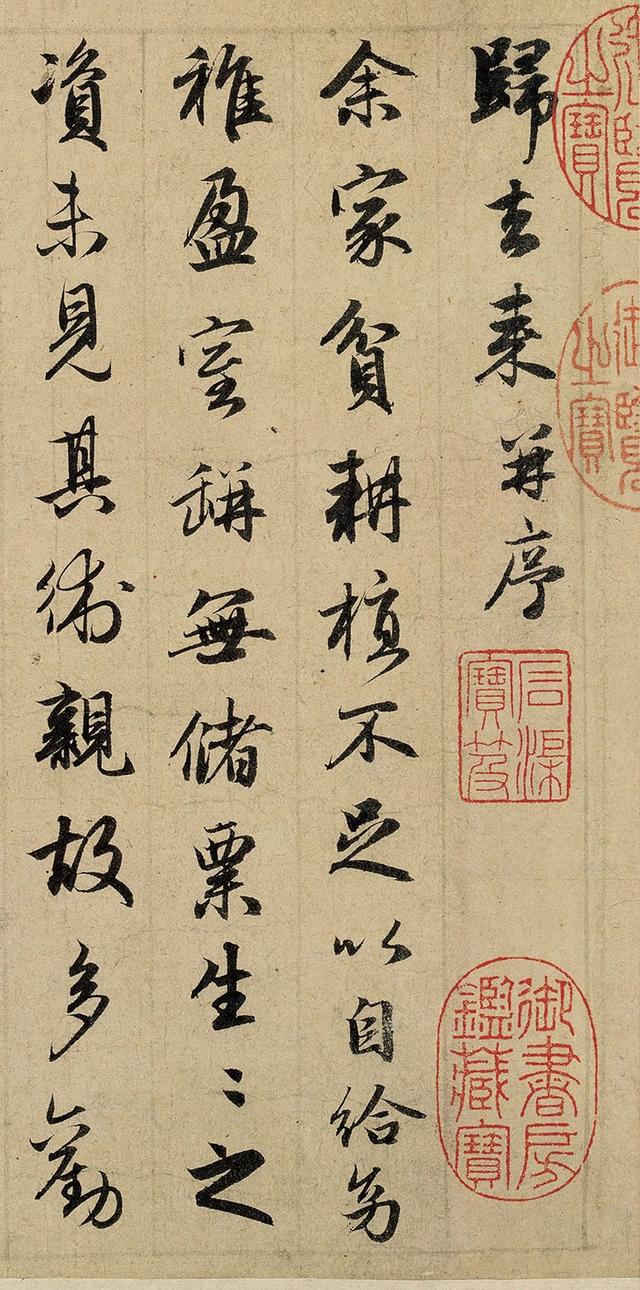 歸去來并序
余家貧耕植不足以自給幼
稚盈室缾無儲粟生〻之
資未見其術親故多勸
御覽之寶
石渠寶笈
御書房鑑藏寶